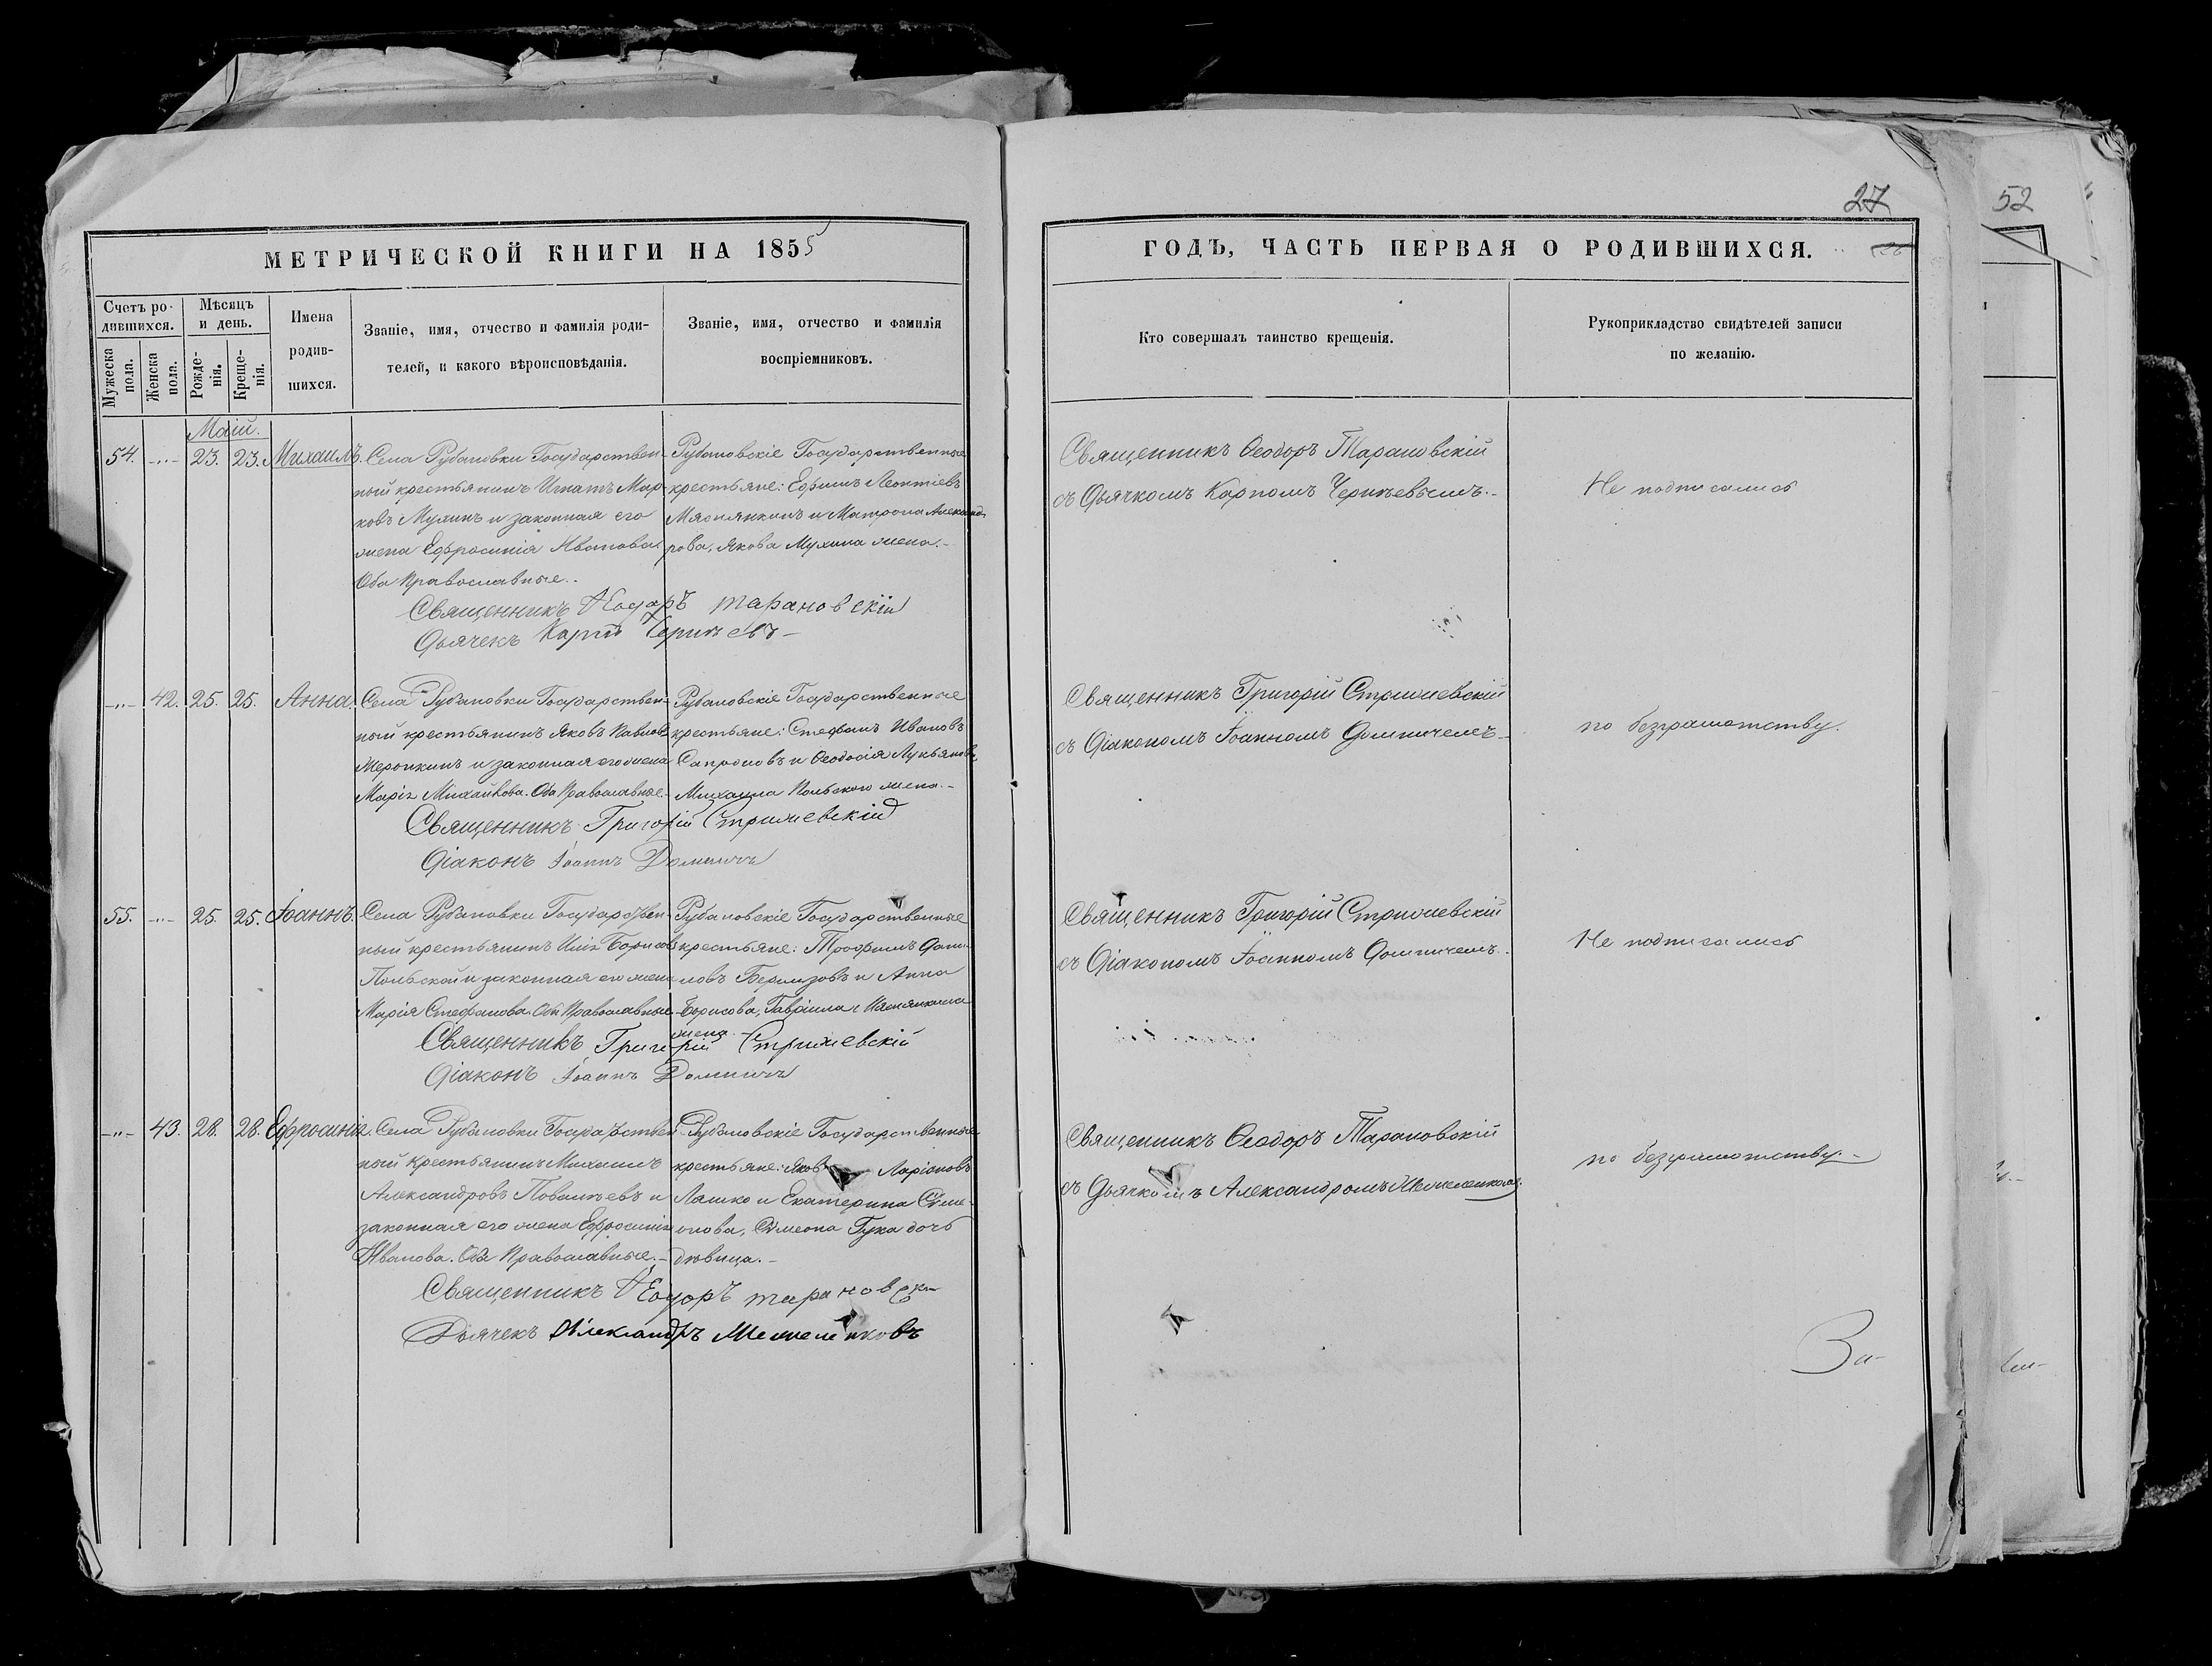 27
52
МЕТРИЧЕСКОЙ КНИГИ НА 1855
ГОДЪ, ЧАСТЬ ПЕРВАЯ О РОДИВШИХСЯ.
Счетъ ро-
дившихся.
Мужеска
пола.
Женска
пола.
Мѣсяцъ
и день.
Рожде-
нія.
Креще-
нія.
Имена
родив-
шихся.
Званіе, имя, отчество и фамилія роди-
телей, и какого вѣроисповѣданія.
Званіе, имя, отчество и фамилія
воспріемниковъ.
Кто совершалъ таинство крещенія.
Рукоприкладство свидѣтелей записи
по желанію.
Маій.
54. -"- 23. 23. Михаилъ.
Села Рубановки Государствен-
ный крестьянинъ Игнатъ Мар-
ковъ Мухинъ и законная его
жена Ефросинія Иванова
Оба Православные.
Рубановскіе Государственные
крестьяне: Ефимъ Леонтіевъ
Мяснянкинъ и Матрона Александ-
рова, Якова Мухина жена.-
Священникъ Ѳеодоръ Тарановскій
съ Дьячкомъ Карпомъ Черниевымъ.-
Не подписались
Священникъ Ѳеодоръ Тарановскій
Дьячекъ Карпъ
-"- 42. 25. 25. Анна.
Села Рубановки Государствен-
ный крестьянинъ Яковъ Павловъ
и законная его жена
Марія Михайлова. Оба Православные.-
Рубановскіе Государственные
крестьяне: Стефанъ Ивановъ
Сапроновъ и Ѳеодосія Лукьянова
Михаила Польскаго жена.-
Священникъ Григорій Стрижевскій
съ Діакономъ Іоанномъ Домничемъ-
по безграмотству.
Священникъ Григорій Стрижевскій
Діаконъ Іоаннъ Домничъ
55. -"- 25. 25. Іоаннъ.
Села Рубановки Государствен-
ный крестьянинъ Илія Борисовъ
Польской и законная его жена
Марія Стефанова. Оба Православные.
Рубановскіе Государственные
крестьяне: Трофимъ Дани-
ловъ и Анна
Борисова, Гавріила Мяснянкина
жена.-
Священникъ Григорій Стрижевскій
съ Діакономъ Іоанномъ Домничемъ.
Не подписались
Священникъ Григорій Стрижевскій
Діаконъ Іоаннъ Домничъ
-"- 43. 28. 28. Ефросинія.
Села Рубановки Государствен-
ный крестьянинъ Михаилъ
Александровъ и
законная его жена Ефросинія
Иванова. Оба Православные.-
Рубановскіе Государственные
крестьяне: Яковъ Ларіоновъ
Ляшко и Екатерина Симе-
онова, Симеона Гука дочь
дѣвица.-
Священникъ Ѳеодоръ Тарановскій
съ Дьячкомъ Александромъ
по безграмотству.-
Священникъ Ѳеодоръ Тарановскій
Дьячекъ Александръ
За-